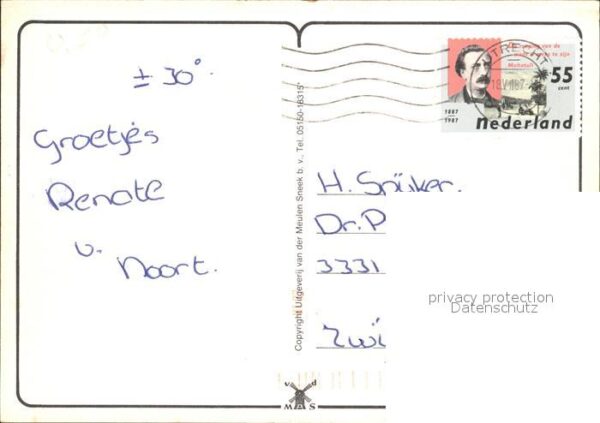 ± 30°
Groetjes
Renate
v. Noort.
Copyright Uitgeverij van der Meulen Sneek b.v., Tel. 05150-16315*
v d
M S
UTRECHT
Multatuli
55
cent
1887
1987
nederland
H. Snijker.
Dr. P
3331
Zwi
privacy protection
Datenschutz